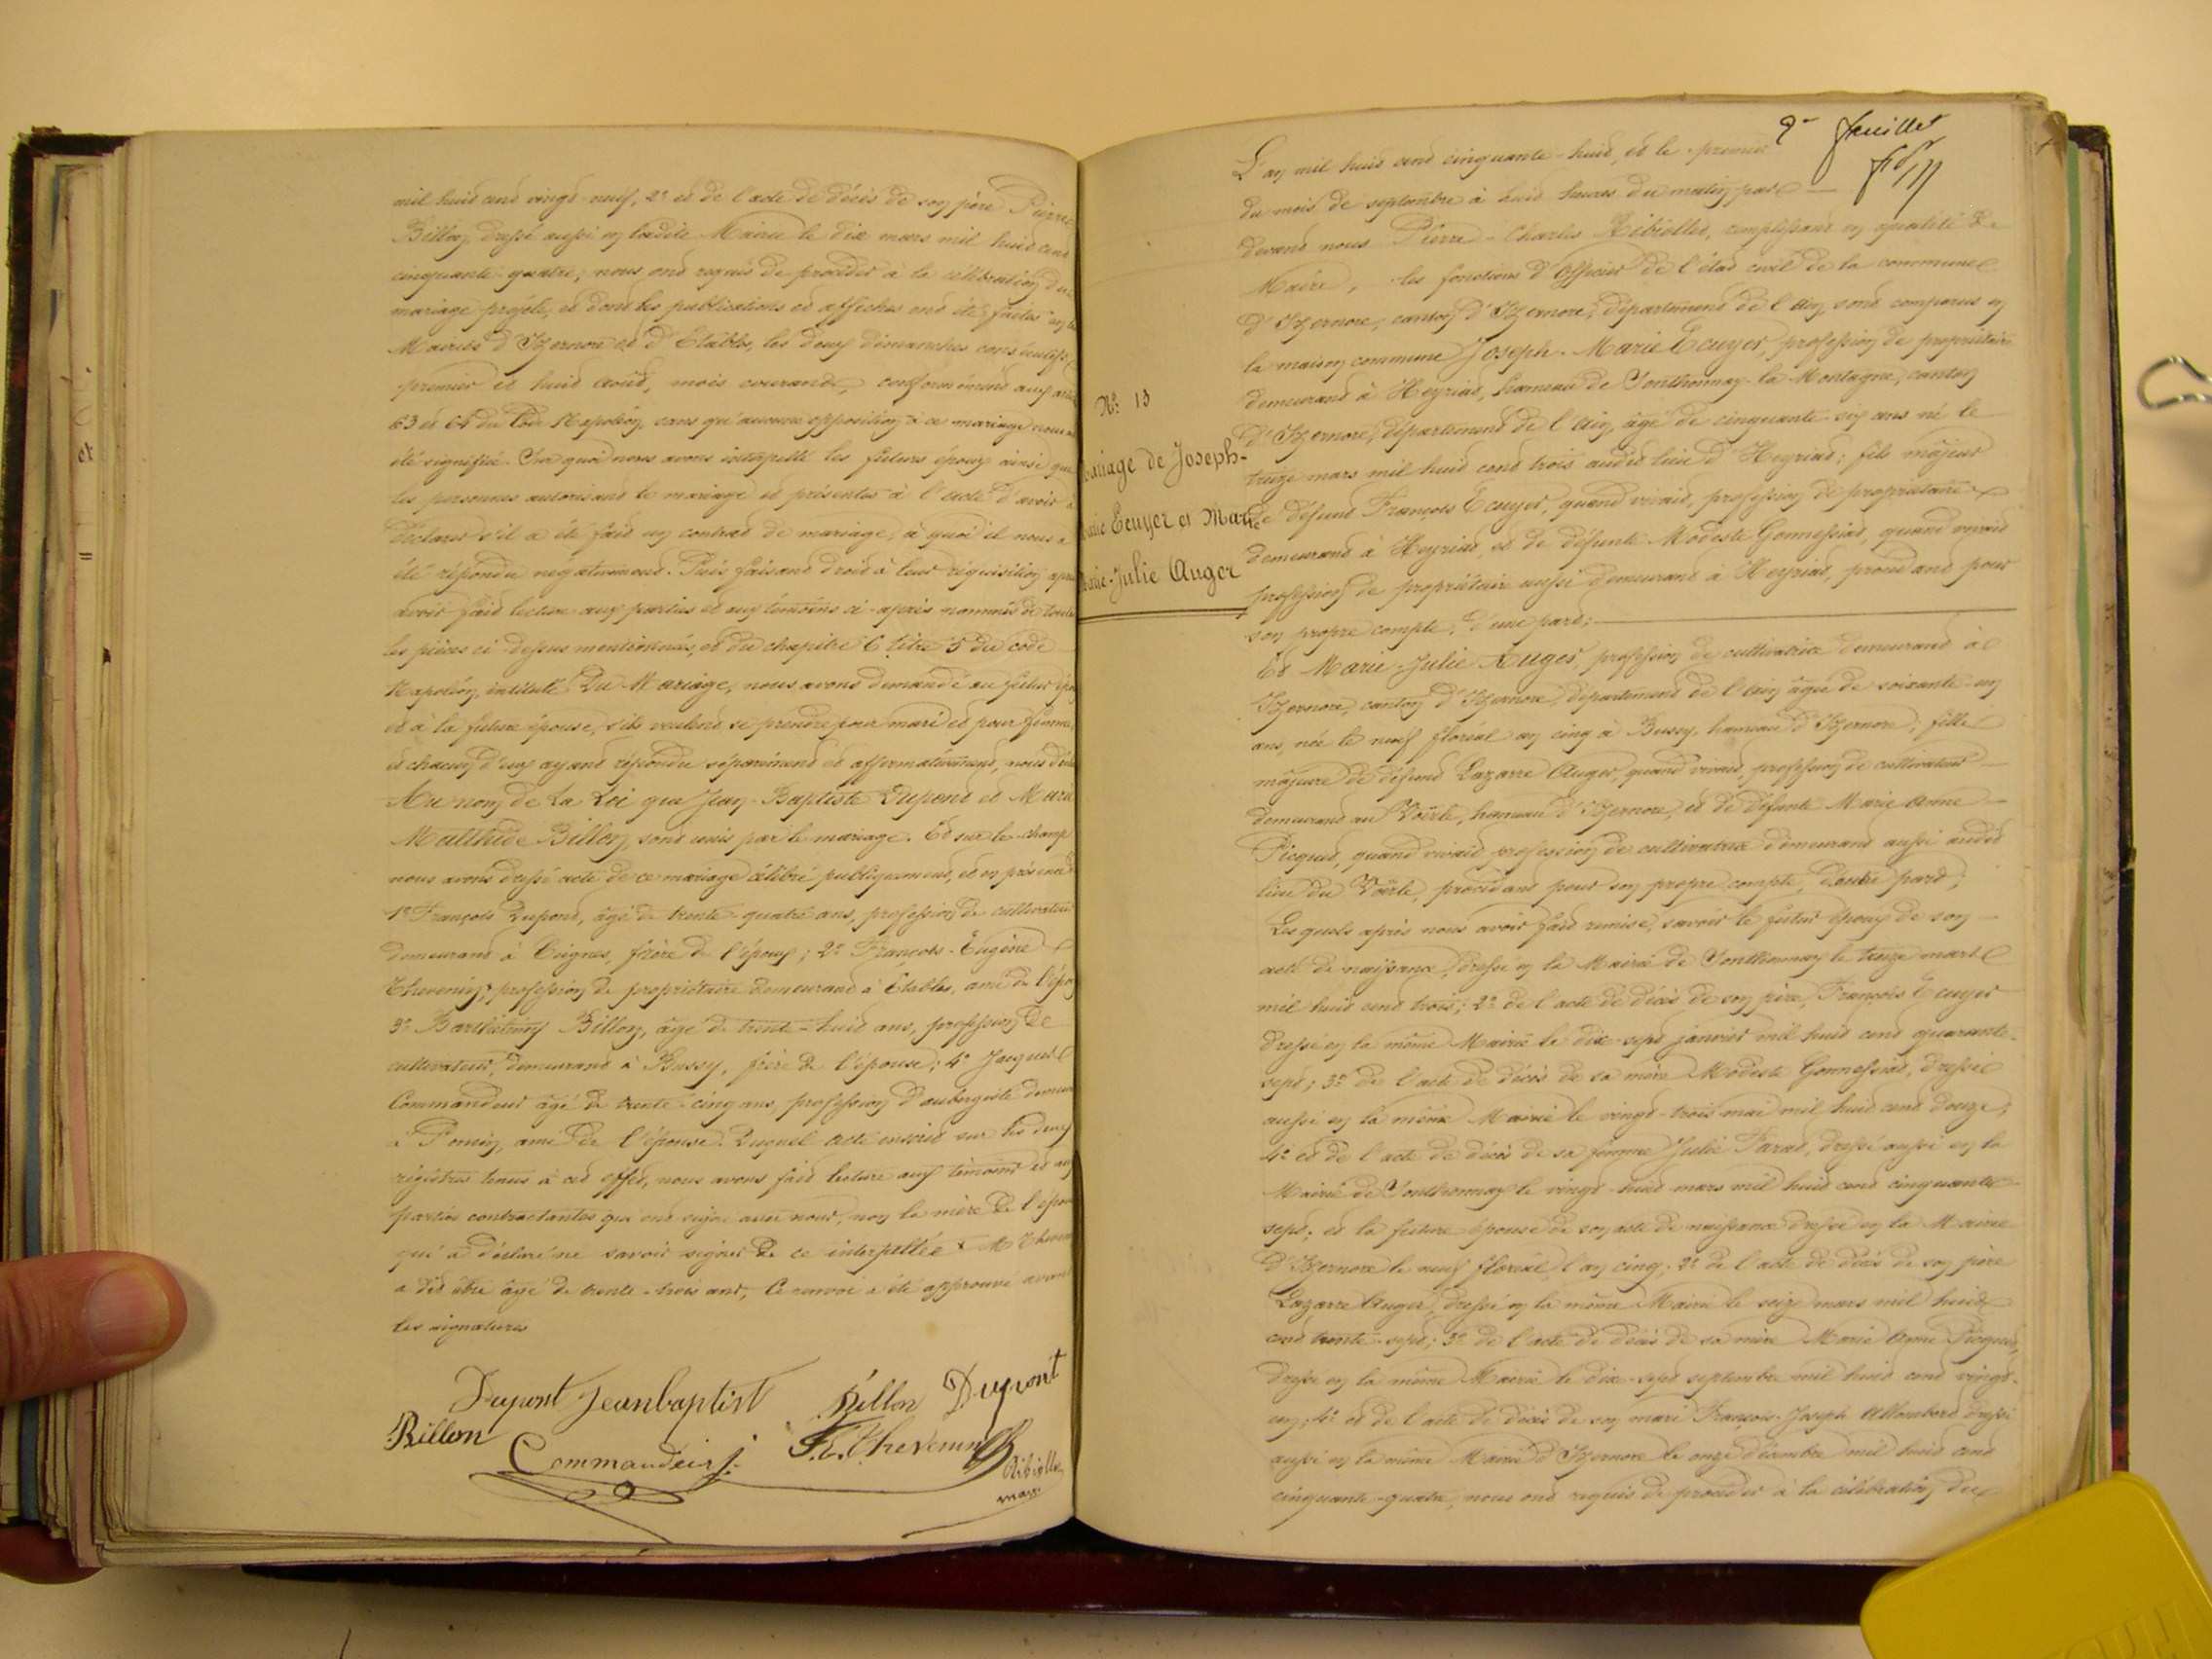 mil huit cent vingt-neuf, 2° et de l'acte de décès de son père Pierre
Billon, dressé aussi en ladite Mairie le dix mars mil huit cent
cinquante-quatre; nous ont requis de procéder à la célébration du
mariage projeté, et dont les publications et affiches ont été faites en les
Mairies d'Izernore et d'Etables, les deux dimanches consécutifs,
premier et huit août, mois courant, conformément aux
63 et 64 du Code Napoléon, sans qu'aucune opposition à ce mariage nous ait
été signifiée. Sur quoi nous avons interpellé les futurs époux ainsi que
les personnes autorisant le mariage et présentes à l'acte d'avoir à
déclarer s'il a été fait un contrat de mariage, à quoi il nous a
été répondu négativement. Puis faisant droit à leur réquisition après
avoir fait lecture aux parties et aux témoins ci-après nommés de toutes
les pièces ci-dessus mentionnées, et du chapitre 6 titre 5 du code
Napoléon, intitulé Du Mariage, nous avons demandé au futur époux
et à la future épouse, s'ils veulent se prendre pour mari et pour femme,
et chacun d'eux ayant répondu séparément et affirmativement, nous
Au nom de La Loi que Jean-Baptiste Dupont et Marie
Mathilde Billon, sont unis par le mariage. Et sur le champ
nous avons dressé acte de ce mariage célébré publiquement, et en présence
1° François Dupont, âgé de trente-quatre ans, profession de cultivateur
demeurant à Ceignes, frère de l'époux; 2° François-Eugène
Thevenin x profession de propriétaire demeurant à Etables, ami de l'époux
3° Barthélémy Billon, âgé de trente-huit ans, profession de
cultivateur, demeurant à Bussy, frère de l'épouse; 4° Jacques
Commandeur âgé de trente-cinq ans, profession d'aubergiste
à Poncin, ami de l'épouse. Duquel acte inscrit sur les deux
régistres tenus à cet effet, nous avons fait lecture aux témoins et aux
parties contractantes qui ont signé avec nous, non la mère de l'époux
qui a déclaré ne savoir signer de ce interpellée x M Thevenin
a dit être âgé de trente-trois ans, Ce renvoi a été approuvé avant
les signatures
Dupont Jeanbaptist Billon Dupont
Billon Commandeur j. F. E. Thevenin Ribiollet
maire
9e feuillet
L'an mil huit cent cinquante-huit, et le premier
du mois de septembre à huit heures du matin par
devant nous Pierre-Charles Ribiollet, remplissant en qualité de
Maire, les fonctions d'Officier de l'état civil de la commune
d'Izernore, canton d'Izernore, département de l'Ain, sont comparus en
la maison commune Joseph-Marie Ecuyer, profession de propriétaire
demeurant à Heyriat, hameau de Sonthonnax-la-Montagne, canton
d'Izernore, département de l'Ain, âgé de cinquante-six ans né le
treize mars mil huit cent trois audit lieu d'Heyriat; fils majeur
de défunt François Ecuyer, quand vivait, profession de propriétaire
demeurant à Heyriat, et de défunte Modeste Gonnessiat, quand vivait
profession de propriétaire aussi demeurant à Heyriat, procédant pour
son propre compte, d'une part;
N° 13
Mariage de Joseph-
Marie Ecuyer et Marie
Marie-Julie Auger
Et Marie-Julie Auger, profession de cultivatrice demeurant à
Izernore, canton d'Izernore, département de l'Ain âgée de soixante-un
ans, née le neuf floréal an cinq à Bussy, hameau d'Izernore; fille
majeure de défunt Lazarre Auger, quand vivait, profession de cultivateur
demeurant au Voërle, hameau d'Izernore, et de défunte Marie Anne
Picquet, quand vivait profession de cultivatrice demeurant aussi audit
lieu du Voërle, procédant pour son propre compte, d'autre part;
Lesquels après nous avoir fait remise, savoir le futur époux de son
acte de naissance, dressé en la Mairie de Sonthonnax le treize mars
mil huit cent trois; 2° de l'acte de décès de son père, François Ecuyer
dressé en la même Mairie le dix-sept janvier mil huit cent quarante-
sept; 3° de l'acte de décès de sa mère Modeste Gonnessiat, dressé
aussi en la même Mairie le vingt-trois mai mil huit cent douze;
4° et de l'acte de décès de sa femme Julie Farat, dressé aussi en la
Mairie de Sonthonnax le vingt-huit mars mil huit cent cinquante
sept; et la future épouse de son acte de naissance dressé en la Mairie
d'Izernore le neuf floréal, l'an cinq; 2° de l'acte de décès de son père
Lazarre Auger, dressé en la même Mairie le seize mars mil huit
cent trente-sept; 3° de l'acte de décès de sa mère Marie Anne Picquet,
dressé en la même Mairie le dix-sept septembre mil huit cent vingt-
un; 4° et de l'acte de décès de son mari François-Joseph Allombert dressé
aussi en la même Mairie d'Izernore le onze décembre mil huit cent
cinquante-quatre, nous ont requis de procéder à la célébration du